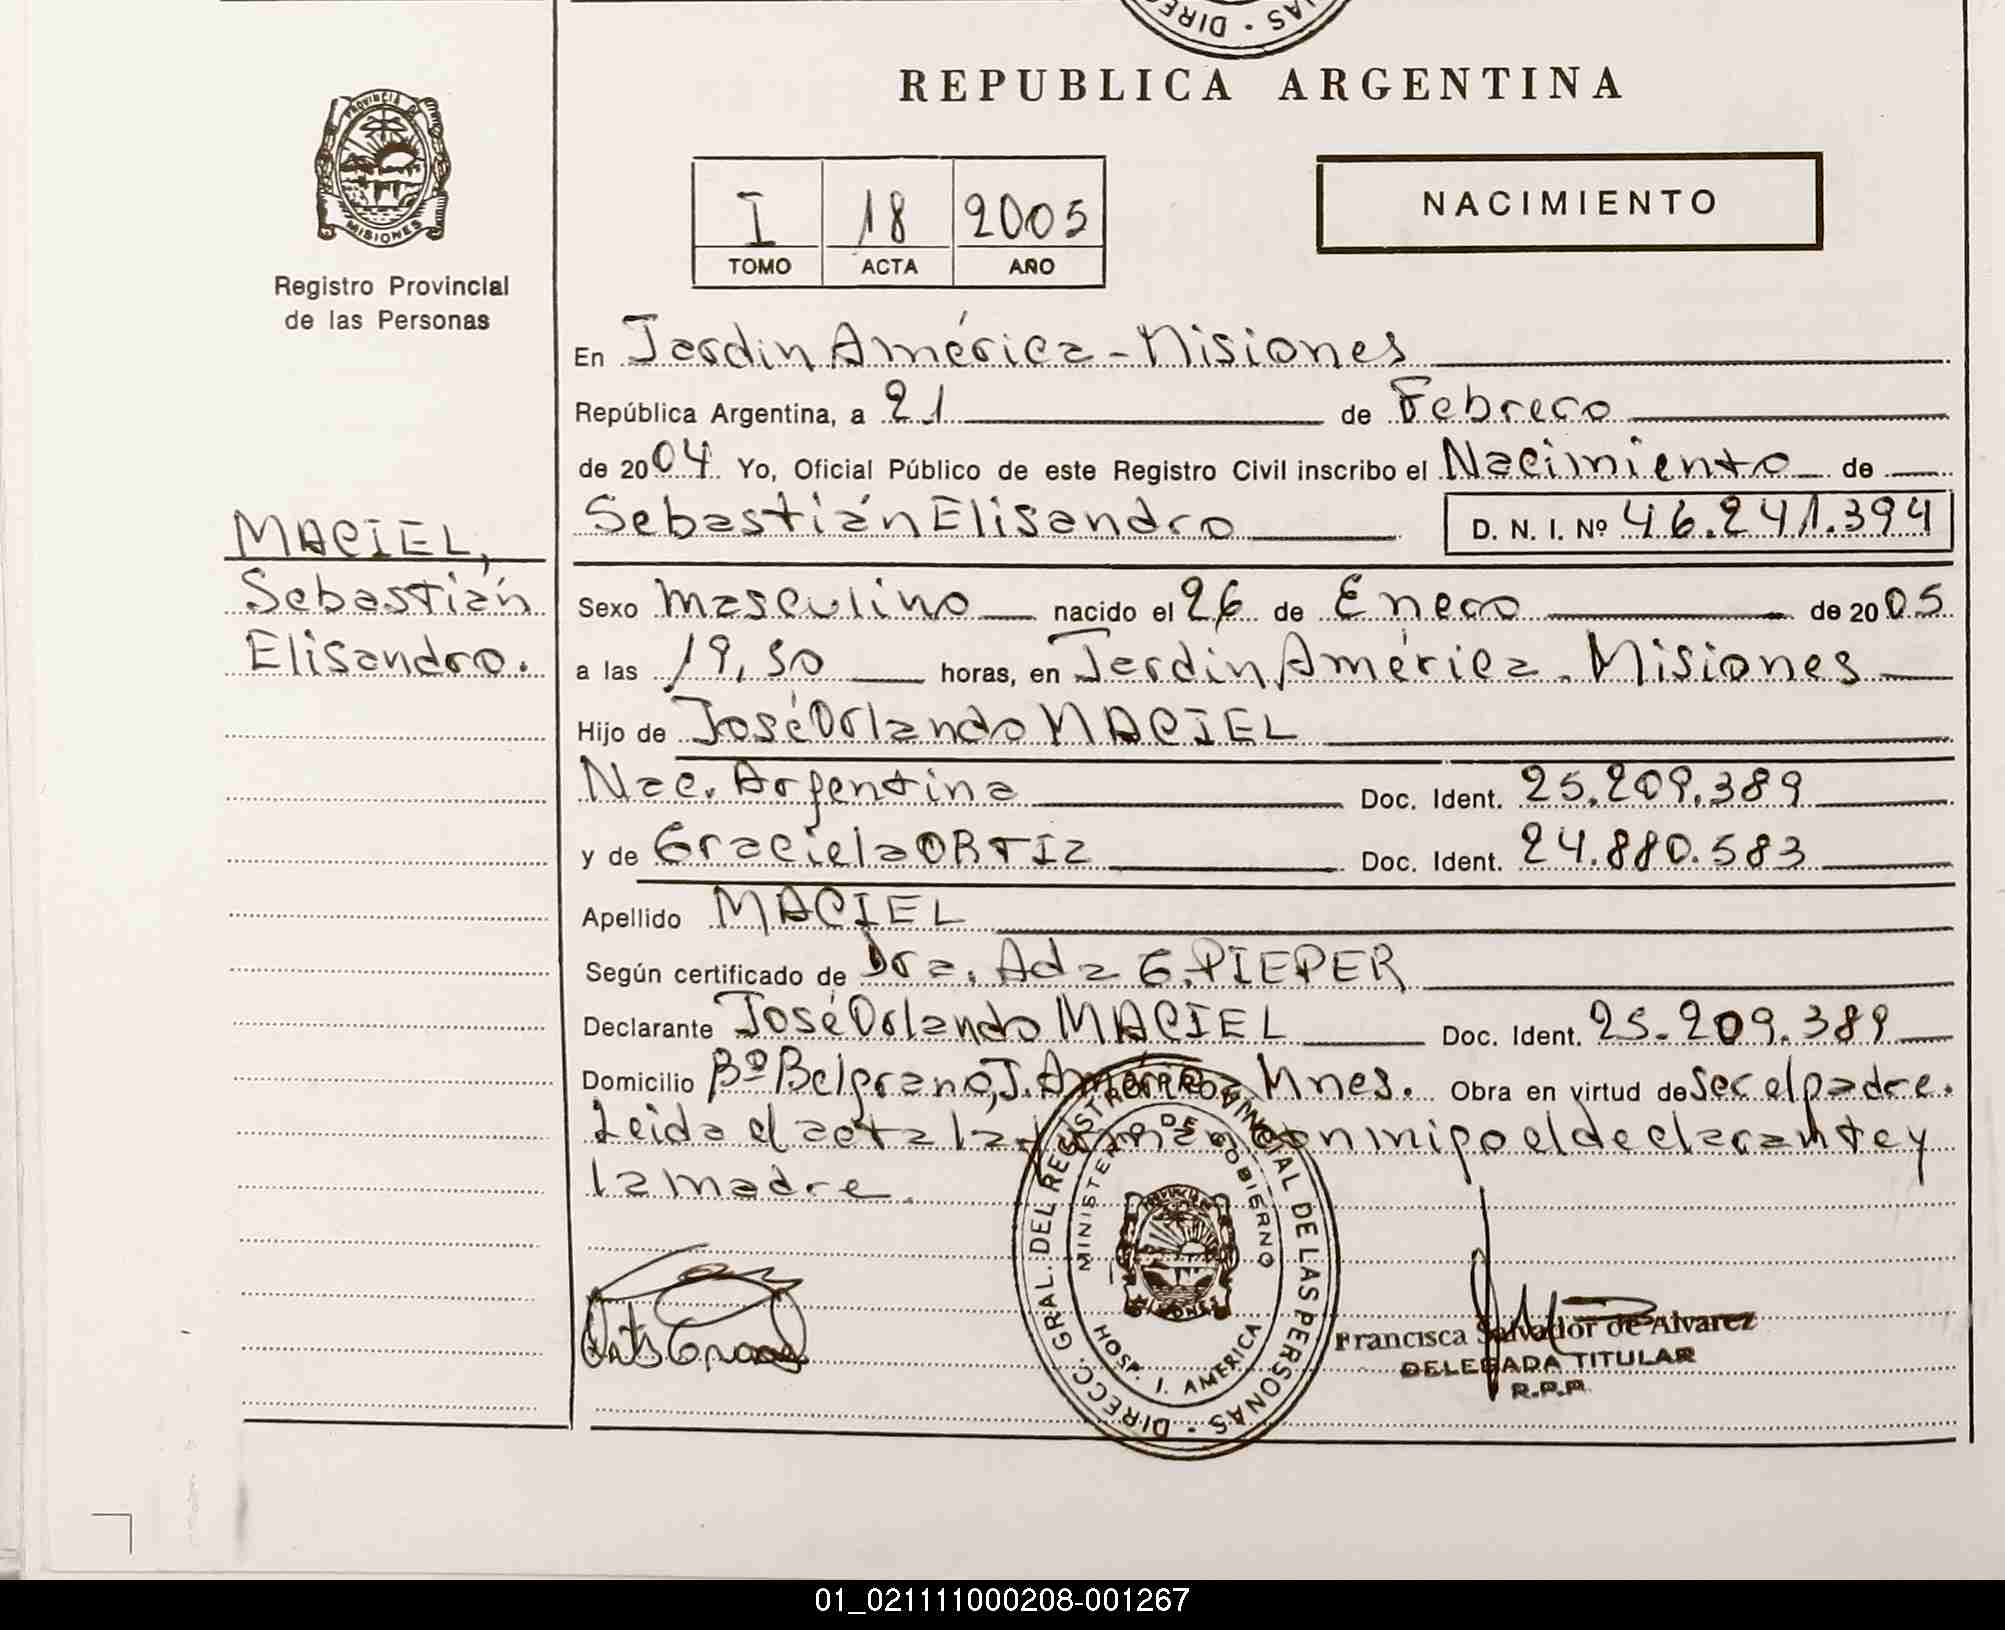 DIREC · IAS
REPUBLICA ARGENTINA
PROVINCIA DE
MISIONES
Registro Provincial
de las Personas
I 18 2005
TOMO ACTA AÑO
NACIMIENTO
En Jardin América - Misiones
República Argentina, a 21 de Febrero
de 2004. Yo, Oficial Público de este Registro Civil inscribo el Nacimiento de
Sebastián Elisandro D. N. I. Nº 46.241.394
MACIEL,
Sebastián
Elisandro.
Sexo masculino nacido el 26 de Enero de 2005
a las 19,30 horas, en Jardin América. Misiones
Hijo de José Orlando MACIEL
Nac. Argentina Doc. Ident. 25.209.389
y de Graciela ORTIZ Doc. Ident. 24.880.583
Apellido MACIEL
Según certificado de Dra. Ada G. PIEPER
Declarante José Orlando MACIEL Doc. Ident. 25.209.389
Domicilio Bº Belgrano, J. América, Mnes. Obra en virtud de ser el padre.
Leida el acta la firman conmigo el declarante y
la madre.
DIRECC. GRAL. DEL REGISTRO PROVINCIAL DE LAS PERSONAS ·
MINISTERIO DE GOBIERNO
HOSP. J. AMERICA
MISIONES
Francisca Salvador de Alvarez
DELEGADA TITULAR
R.P.P.
01_021111000208-001267